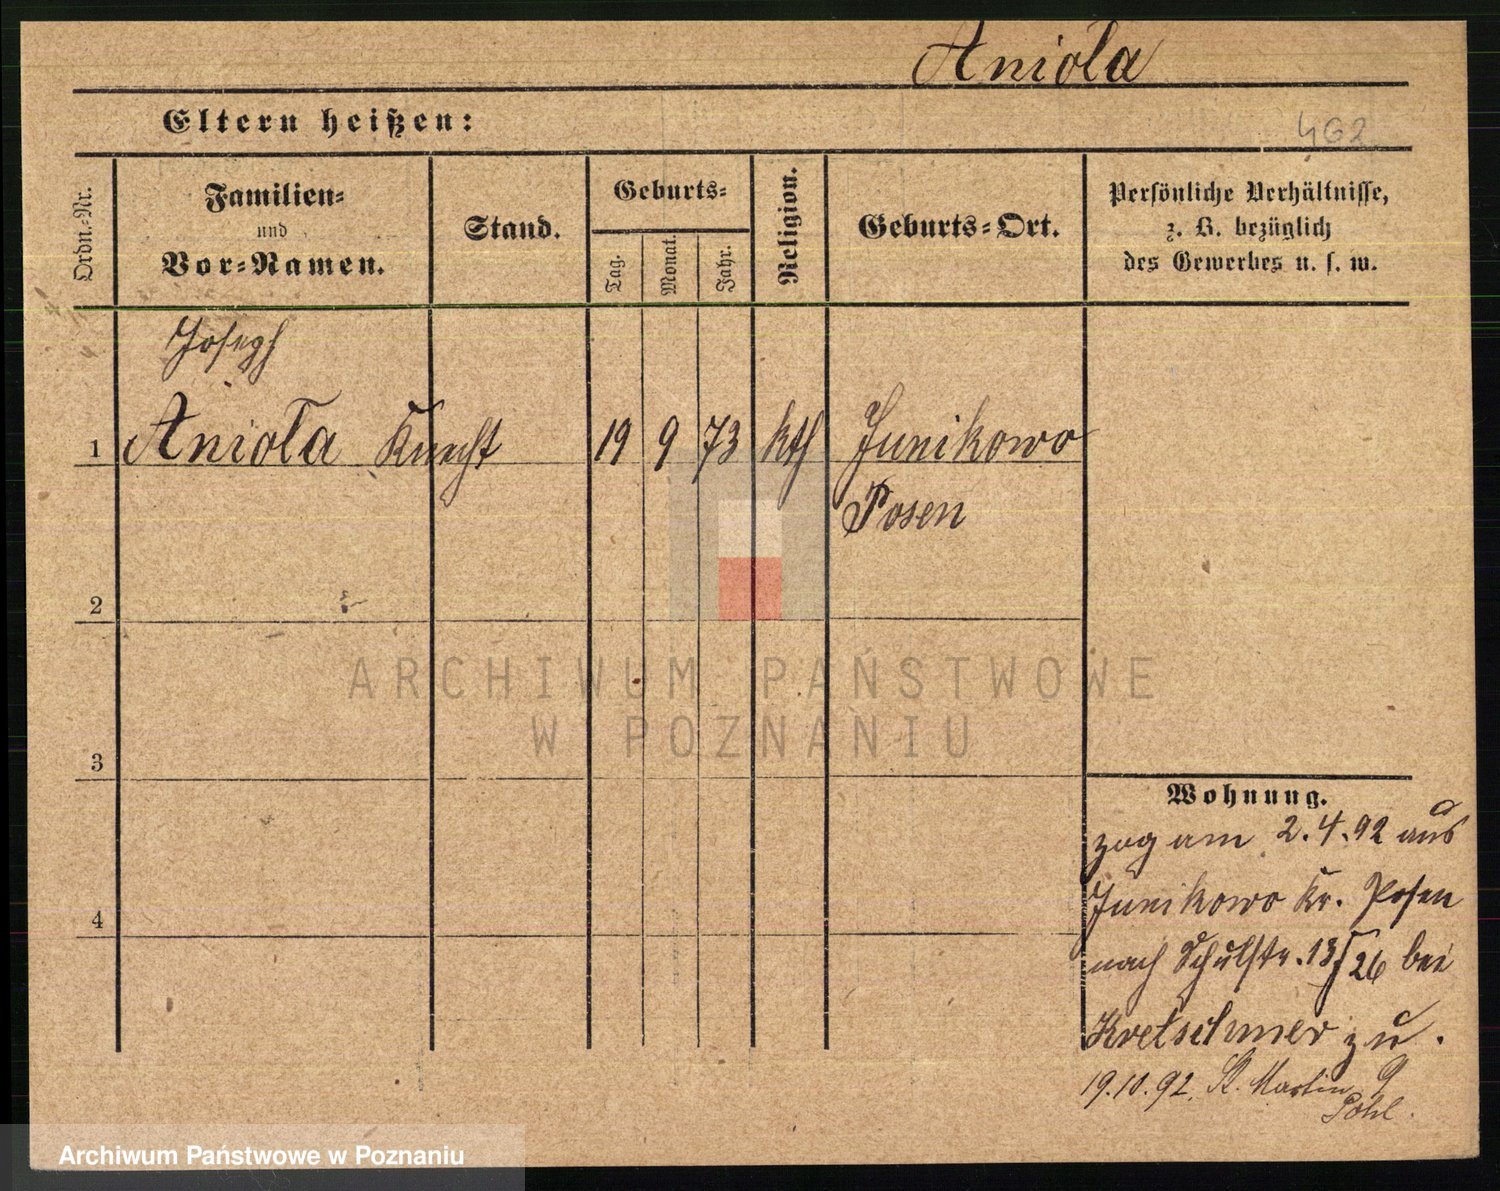 Aniola
Eltern heißen:
462
Ordn.-Nr.
Familien-
und
Vor-Namen.
Stand.
Geburts-
Tag.
Monat.
Jahr.
Religion.
Geburts-Ort.
Persönliche Verhältnisse,
z. B. bezüglich
des Gewerbes u. s. w.
Joseph
1 Aniola Knecht 19 9 73 kth Junikowo
Posen
2
3
4
Wohnung.
zog am 2.4.92 aus
Junikowo Kr. Posen
nach Schulstr. 13/26 bei
Kretschmer zu.
19.10.92. St. Martin 9
Pohl.
ARCHIWUM PAŃSTWOWE
W POZNANIU
Archiwum Państwowe w Poznaniu